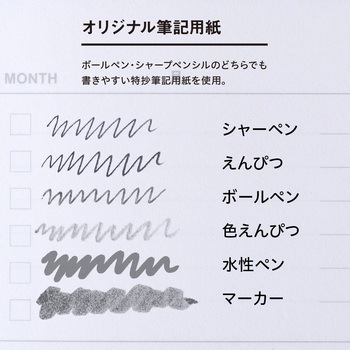 オリジナル筆記用紙
ボールペン・シャープペンシルのどちらでも
書きやすい特抄筆記用紙を使用。
MONTH
シャーペン
えんぴつ
ボールペン
色えんぴつ
水性ペン
マーカー